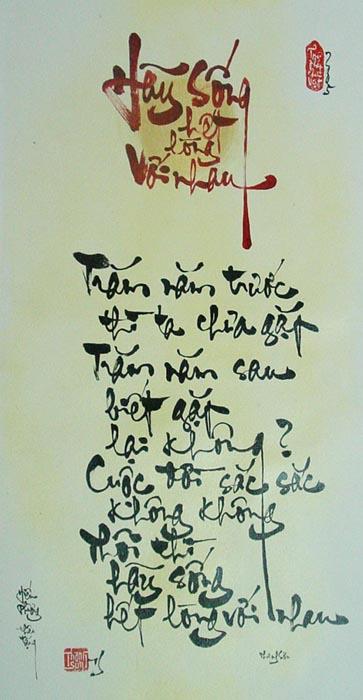 Hãy sống
hết
lòng
Với nhau
Trăm năm trước
thì ta chưa gặp
Trăm năm sau
biết gặp
lại không?
Cuộc đời sắc sắc
không không
Thôi thì
hãy sống
hết lòng với nhau